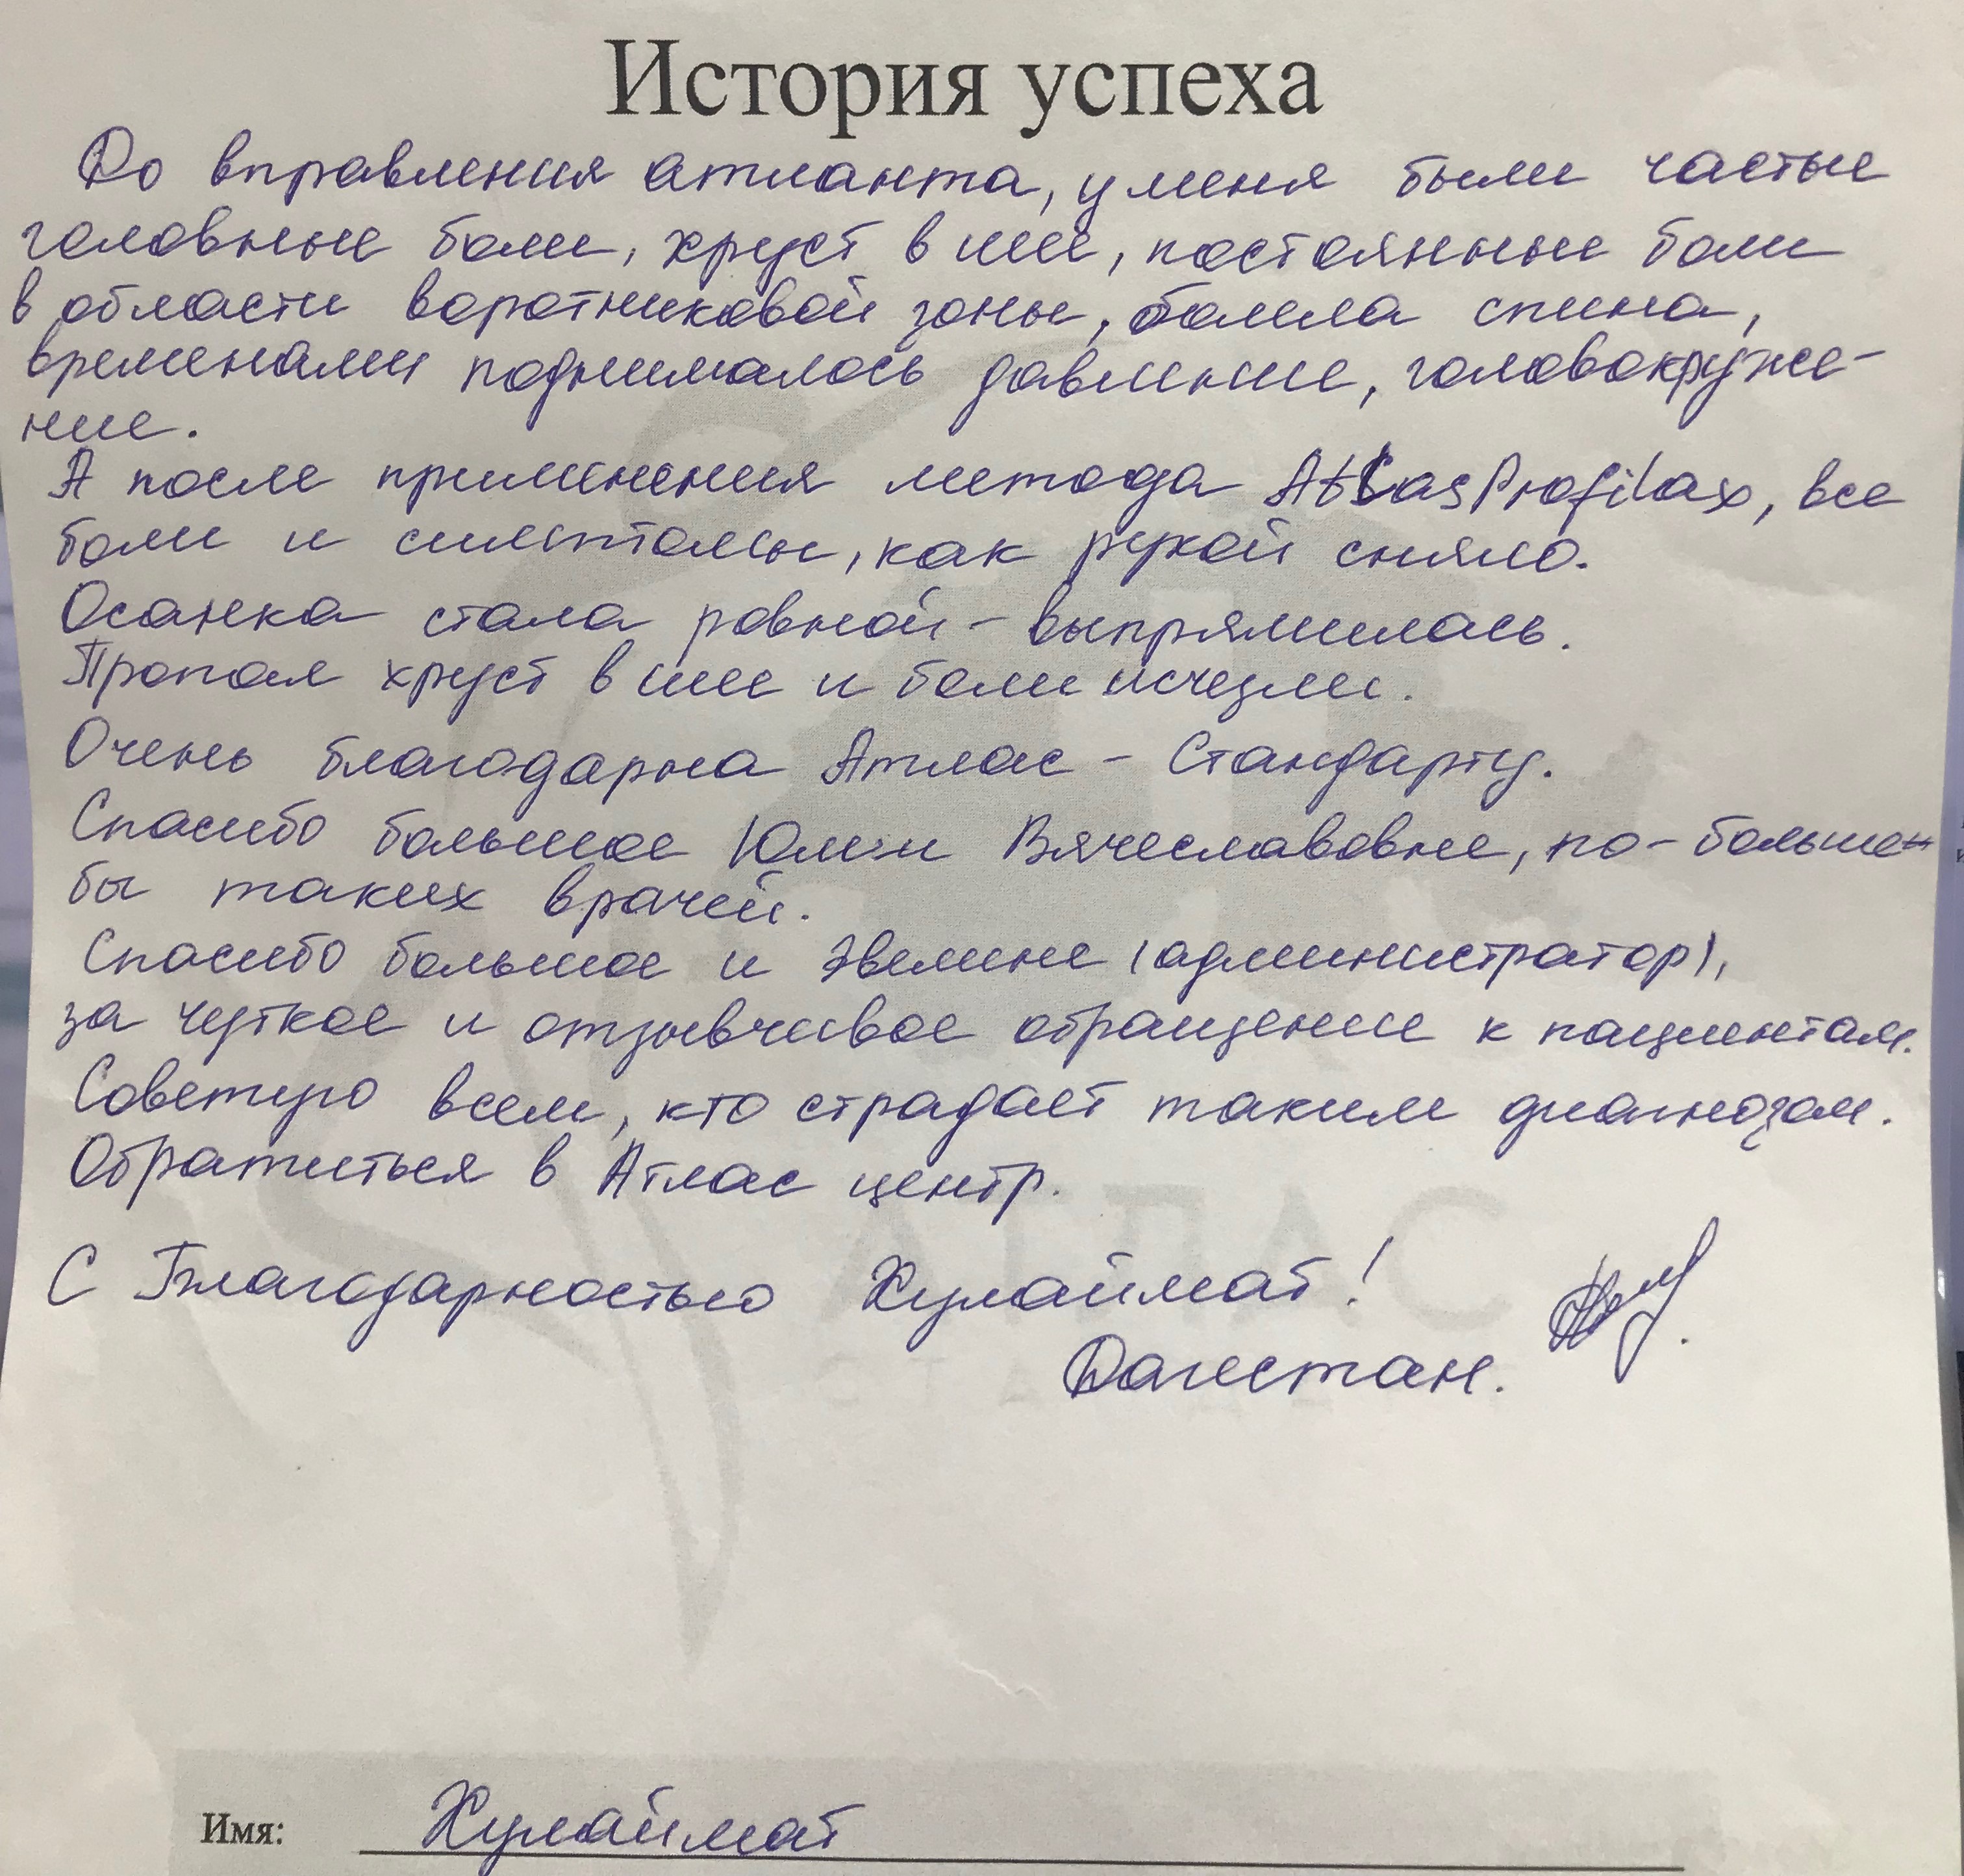 История успеха
До вправления атланта, у меня были частые
головные боли, хруст в шее, постоянные боли
в области воротниковой зоны, болела спина,
временами поднималось давление, головокруже-
ние.
А после применения метода AtlasProfilax, все
боли и симптомы, как рукой сняло.
Осанка стала ровной - выпрямилась.
Пропал хруст в шее и боли исчезли.
Очень благодарна Атлас - Стандарту.
Спасибо большое Юлии Вячеславовне, по-больше
бы таких врачей.
Спасибо большое и Эвелине (администратор),
за чуткое и отзывчивое обращение к пациентам.
Советую всем, кто страдает таким диагнозом.
Обратиться в Атлас центр.
С Благодарностью Хулаймат!
Дагестан.
АТЛАС
Имя: Хулаймат